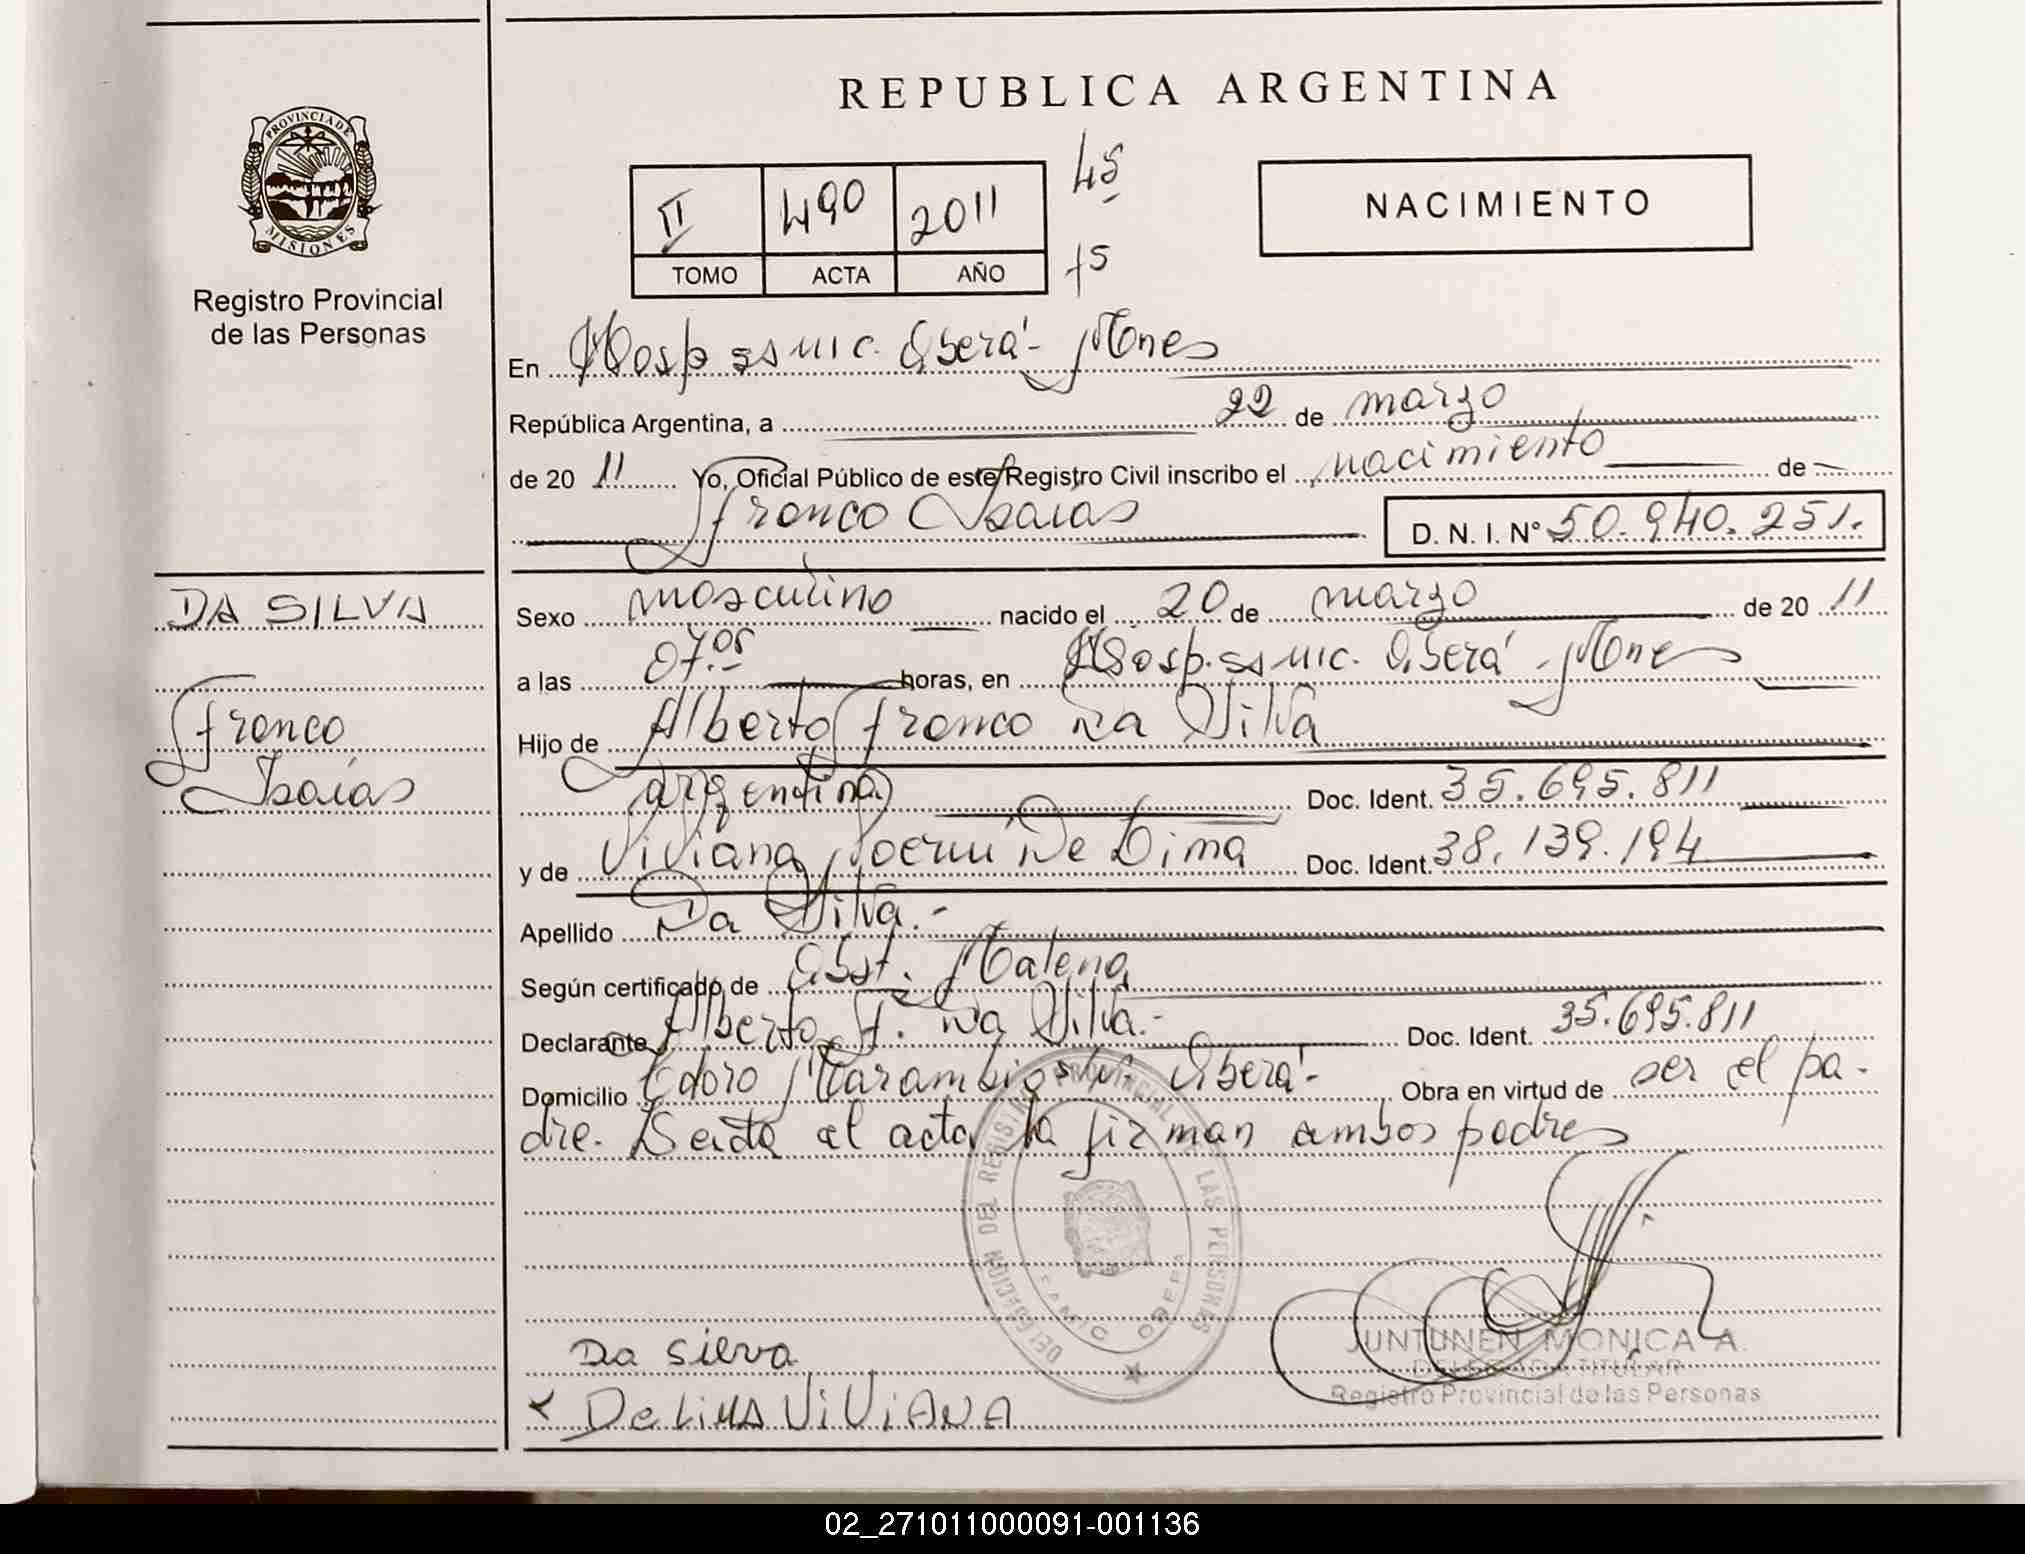 REPUBLICA ARGENTINA
PROVINCIA DE
MISIONES
Registro Provincial
de las Personas
II 490 2011
TOMO ACTA AÑO
45
15
NACIMIENTO
En Hosp ss mic. Oberá - Mnes
República Argentina, a 22 de marzo
de 20 11 Yo, Oficial Público de este Registro Civil inscribo el nacimiento de
Franco Isaías D. N. I. N° 50.940.251.
DA SILVA
Franco
Isaías
Sexo masculino nacido el 20 de marzo de 20 11
a las 07.05 horas, en Hosp. ss mic. Oberá - Mnes
Hijo de Alberto Franco Da Silva
argentina Doc. Ident. 35.695.811
y de Viviana Noemí De Lima Doc. Ident. 38.139.194
Apellido Da Silva.-
Según certificado de Obst. Malena
Declarante Alberto F. Da Silva.- Doc. Ident. 35.695.811
Domicilio Cdoro Oberá- Obra en virtud de ser el pa-
dre. Leída el acta la firman ambos padres
DELEGACION DEL REGISTRO PROVINCIAL DE LAS PERSONAS
OBERA
Da silva
x De LiMA ViViANA
JUNTUNEN MONICA A.
DELEGADA TITULAR
Registro Provincial de las Personas
02_271011000091-001136